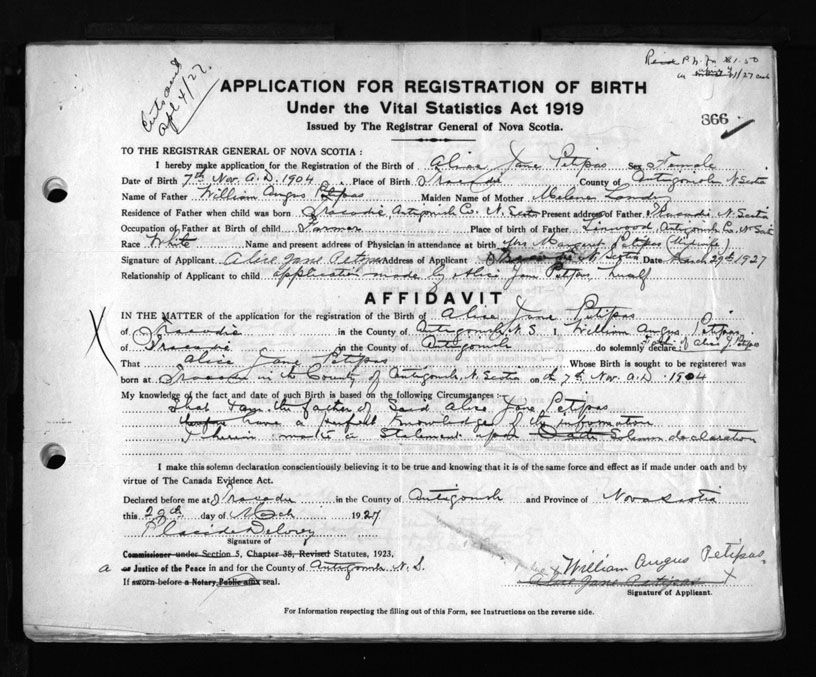 Apl 4/27.
$1.50
APPLICATION FOR REGISTRATION OF BIRTH
Under the Vital Statistics Act 1919
Issued by The Registrar General of Nova Scotia.
866
TO THE REGISTRAR GENERAL OF NOVA SCOTIA :
I hereby make application for the Registration of the Birth of Alice Jane Petipas Sex Female
Date of Birth 7th Nov. A.D. 1904 Place of Birth Tracadie County of Antigonish N Scotia
Name of Father William Angus Petipas Maiden Name of Mother Melene Landry
Residence of Father when child was born Tracadie, Antigonish Co. N. Scotia Present address of Father Tracadie N. Scotia
Occupation of Father at Birth of child Farmer Place of birth of Father Linwood Antigonish Co. N Scotia
Race White Name and present address of Physician in attendance at birth Mrs Margaret Petipas (Midwife)
Signature of Applicant Alice Jane Petipas Address of Applicant Tracadie N. Scotia Date March 29th 1927
Relationship of Applicant to child application made by Alice Jane Petipas herself
AFFIDAVIT
IN THE MATTER of the application for the registration of the Birth of Alice Jane Petipas
of Tracadie in the County of Antigonish N.S. I, William Angus Petipas
of Tracadie in the County of Antigonish do solemnly declare: father of Alice J. Petipas
That Alice Jane Petipas Whose Birth is sought to be registered was
born at Tracadie in the County of Antigonish N. Scotia on the 7th Nov. A.D. 1904
My knowledge of the fact and date of such Birth is based on the following Circumstances :—
That I am the father of said Alice Jane Petipas
have a perfect knowledge of the information
I herein make a Statement upon Solemn declaration
I make this solemn declaration conscientiously believing it to be true and knowing that it is of the same force and effect as if made under oath and by
virtue of The Canada Evidence Act.
Declared before me at Tracadie in the County of Antigonish and Province of Nova Scotia
this 29th day of March 1927
Placide Delorey
Signature of
Commissioner under Section 5, Chapter 38, Revised Statutes, 1923.
a or Justice of the Peace in and for the County of Antigonish N. S.
If sworn before a Notary Public affix seal.
William Angus Petipas
Alice Jane Petipas X
Signature of Applicant.
For Information respecting the filling out of this Form, see Instructions on the reverse side.